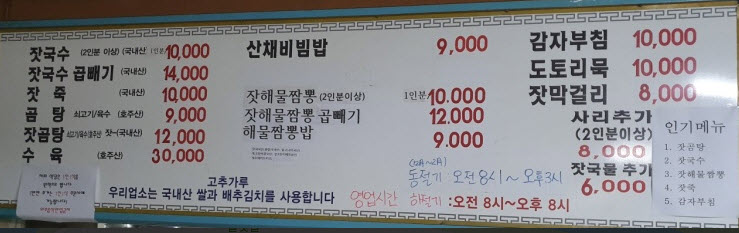 잣국수 (2인분 이상) (국내산) 1인분 10,000
잣국수 곱빼기 (국내산) 14,000
잣 죽 (국내산) 10,000
곰 탕 쇠고기/육수 (호주산) 9,000
잣곰탕 쇠고기/육수(호주산) 잣-(국내산) 12,000
수 육 (호주산) 30,000
산채비빔밥 9,000
잣해물짬뽕 (2인분이상) 1인분 10.000
잣해물짬뽕 곱빼기 12.000
해물짬뽕밥 9.000
감자부침 10,000
도토리묵 10,000
잣막걸리 8,000
사리추가
(2인분이상)
8,000
잣국물 추가
6,000
인기메뉴
1. 잣곰탕
2. 잣국수
3. 잣해물짬뽕
4. 잣죽
5. 감자부침
고추가루
우리업소는 국내산 쌀과 배추김치를 사용합니다
동절기 오전 8시~오후3시
영업시간 하절기 :오전 8시~오후 8시